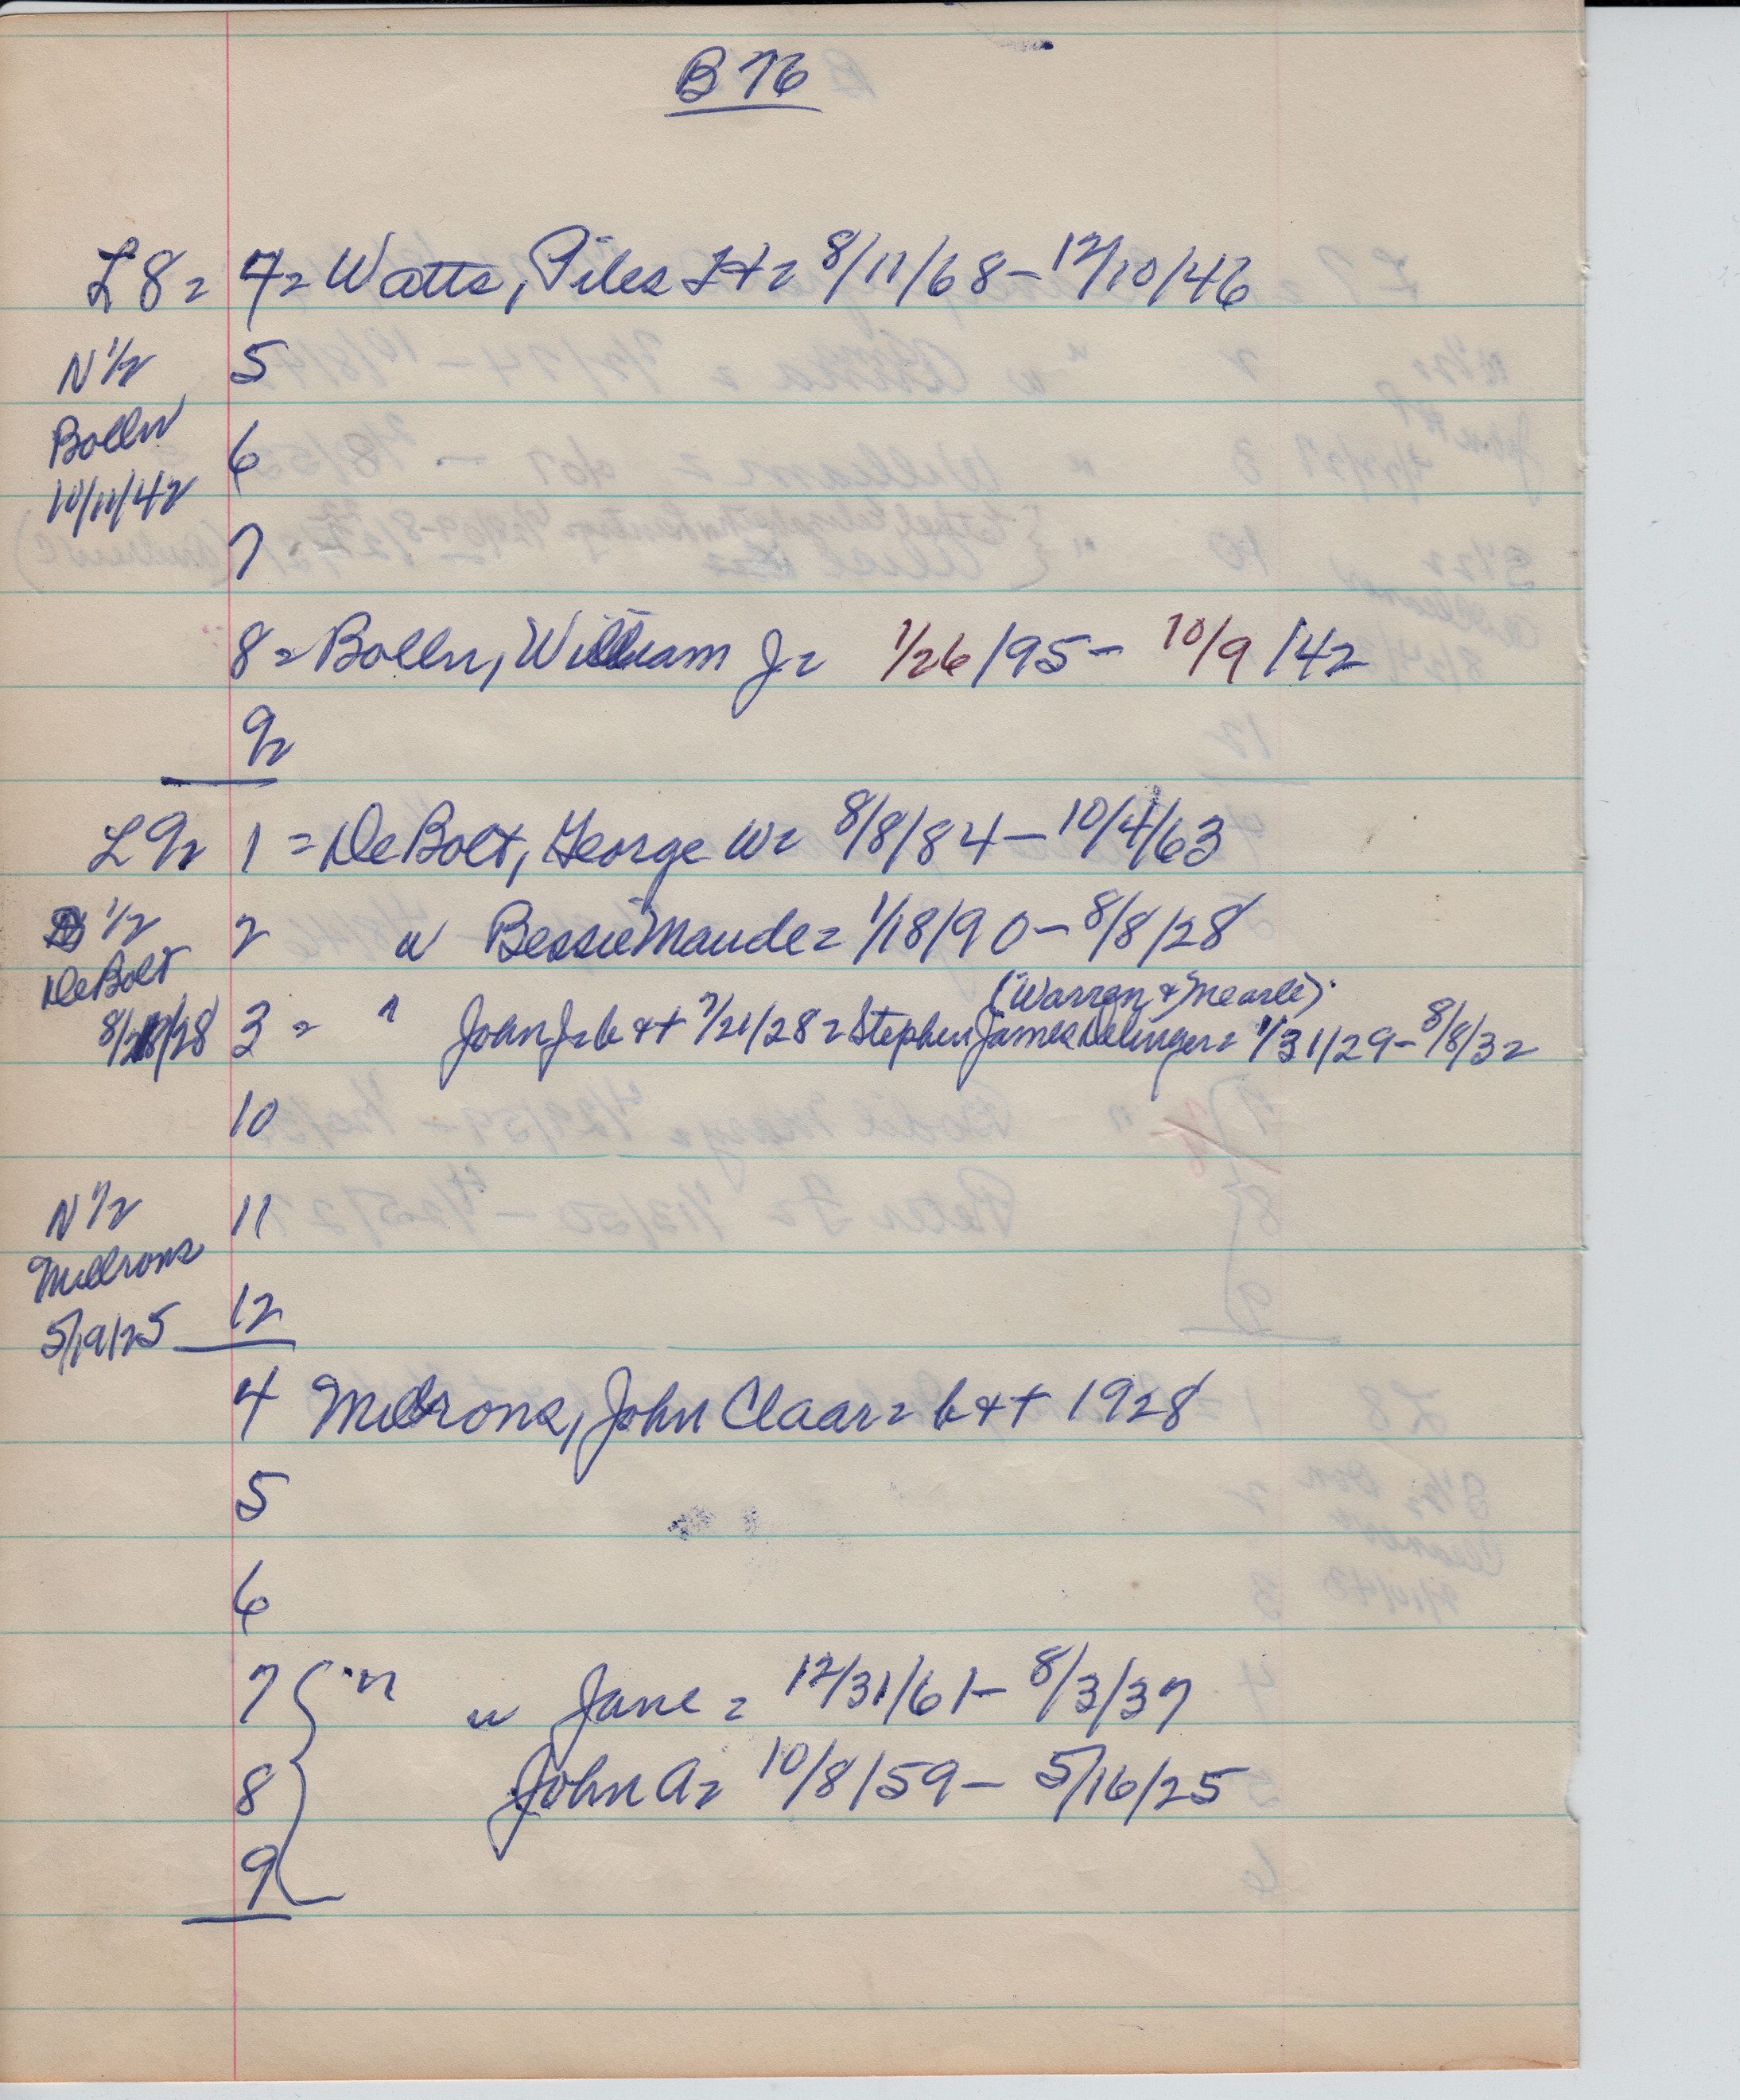 B 76
L 8 = 4 = Watts, Piles H = 8/11/68 - 12/10/46
N 1/2 5
Bolln 6
10/11/42
7
8 = Bolln, William J = 1/26/95 - 10/9/42
9 =
L 9 = 1 = DeBolt, George W = 8/8/84 - 10/4/63
1/2 2 " Bessie Maude = 1/18/90 - 8/8/28
DeBolt
(Warren & Mearle)
3 = " John J = b & + 7/21/28 = Stephen James = 1/31/29 - 8/8/32
10
N 1/2 11
Milrons
12
5/19/25
4 Milrons, John Claar = b & + 1928
5
6
7 { " " Jane = 12/31/61 - 8/3/37
8 John A = 10/8/59 - 5/16/25
9